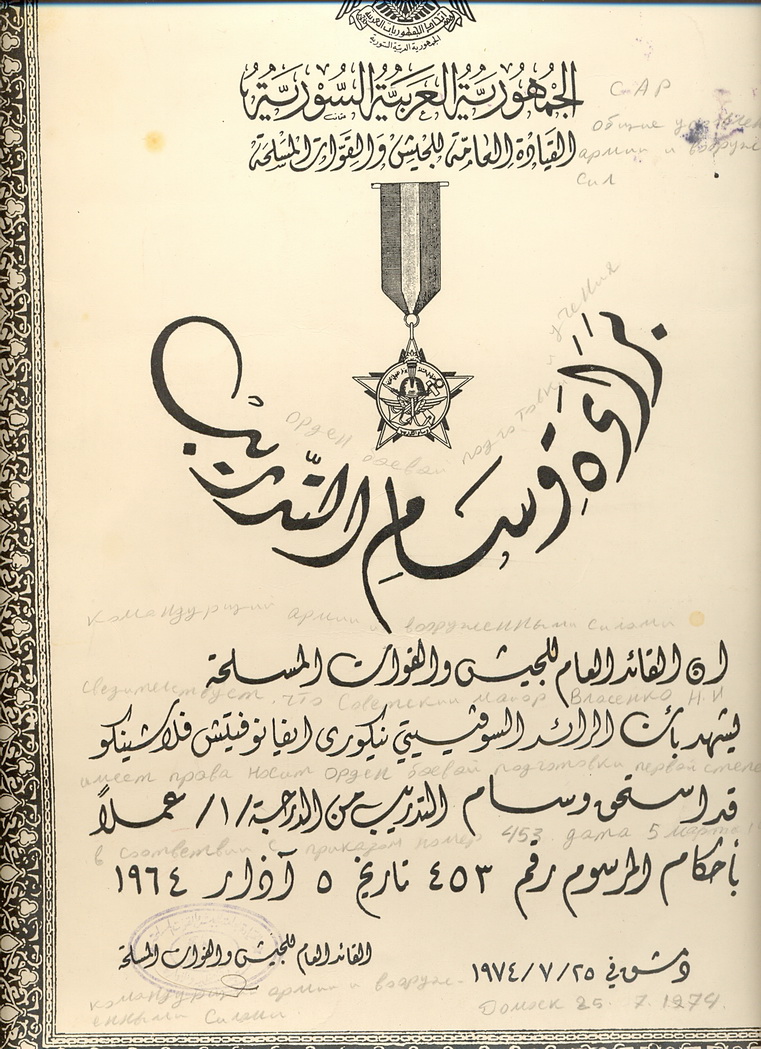 الجمهورية العربية السورية
الجُمْهُوريَّة العَربيَّة السّوريَّة
С-АР
القيَادَة العَامَّة للجَيشْ وَالقوَّاتْ المسَلحَة
общее
армии и вооруж
сил
بَرَاءَة وسَامِ التّدريْب
орден боевой подготовки и учения
командующий армии и вооруженными силами
ان القائد العام للجيش والقوات المسلحة
свидетельствует, что Советский майор Власенко Н.И
يشهد بأن الرائد السوفييتي نيكوري ايفانوفيتش فلاشينكو
имеет права носит орден боевой подготовки первой степе
قد استحق وسام التدريب من الدرجة /١/ عملاً
в соответствии с приказом номер 453 дата 5 марта
بأحكام المرسوم رقم ٤٥٣ تاريخ ٥ آذار ١٩٦٤
دمشق في ٢٥/٧/١٩٧٤
القائد العام للجيش والقوات المسلحة
командующий армии и вооруж-
енными силами
Домаск 25. 7. 1974.